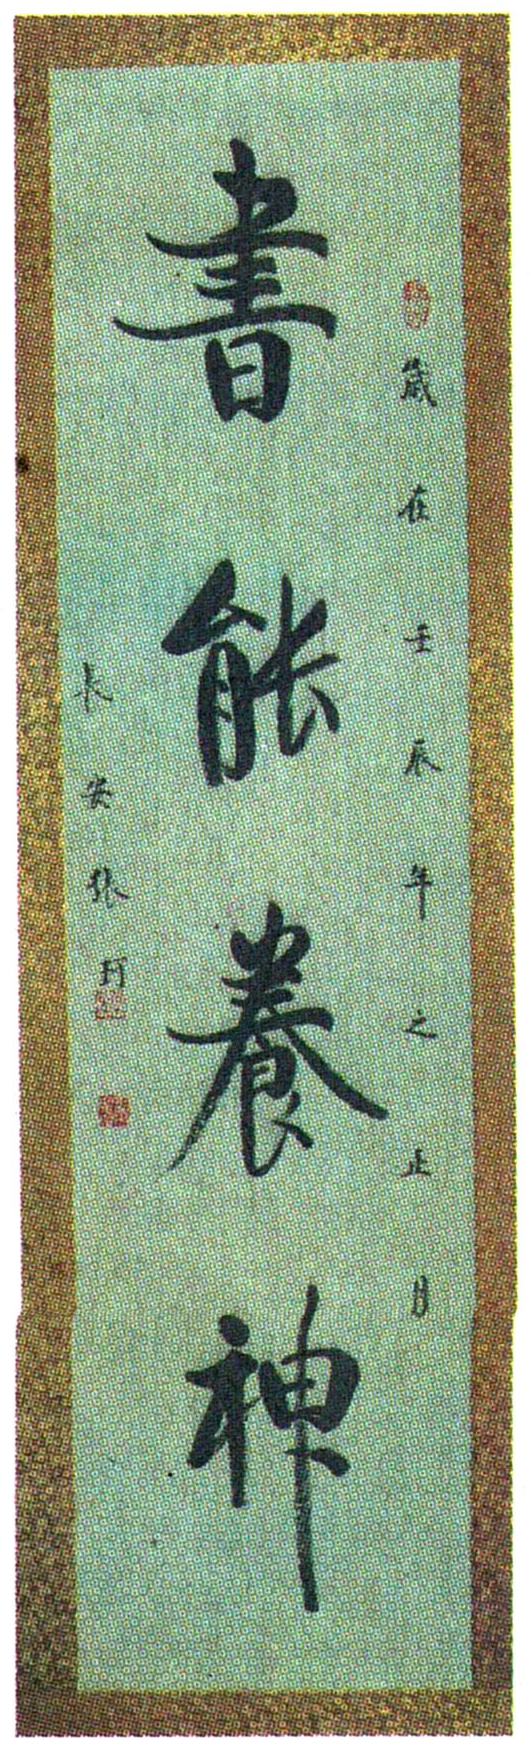 歲在壬辰年之正月
書能養神
長安張珂